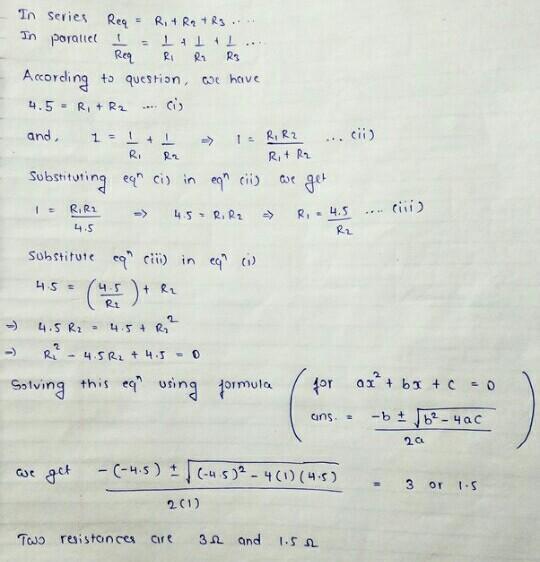 In series Req = R₁ + R₂ + R₃ ....
In parallel 1/Req = 1/R₁ + 1/R₂ + 1/R₃ ....
According to question, we have
4.5 = R₁ + R₂ .... (i)
and, 1 = 1/R₁ + 1/R₂ ⇒ 1 = R₁R₂/R₁ + R₂ ... (ii)
Substituting eqⁿ (i) in eqⁿ (ii) we get
1 = R₁R₂/4.5 ⇒ 4.5 = R₁R₂ ⇒ R₁ = 4.5/R₂ .... (iii)
Substitute eqⁿ (iii) in eqⁿ (i)
4.5 = (4.5/R₂) + R₂
⇒ 4.5 R₂ = 4.5 + R₂²
⇒ R₂² - 4.5R₂ + 4.5 = 0
Solving this eqⁿ using formula (for ax² + bx + c = 0
ans. = -b ± √(b² - 4ac)/2a)
we get -(-4.5) ± √((-4.5)² - 4(1)(4.5))/2(1) = 3 or 1.5
Two resistances are 3Ω and 1.5 Ω